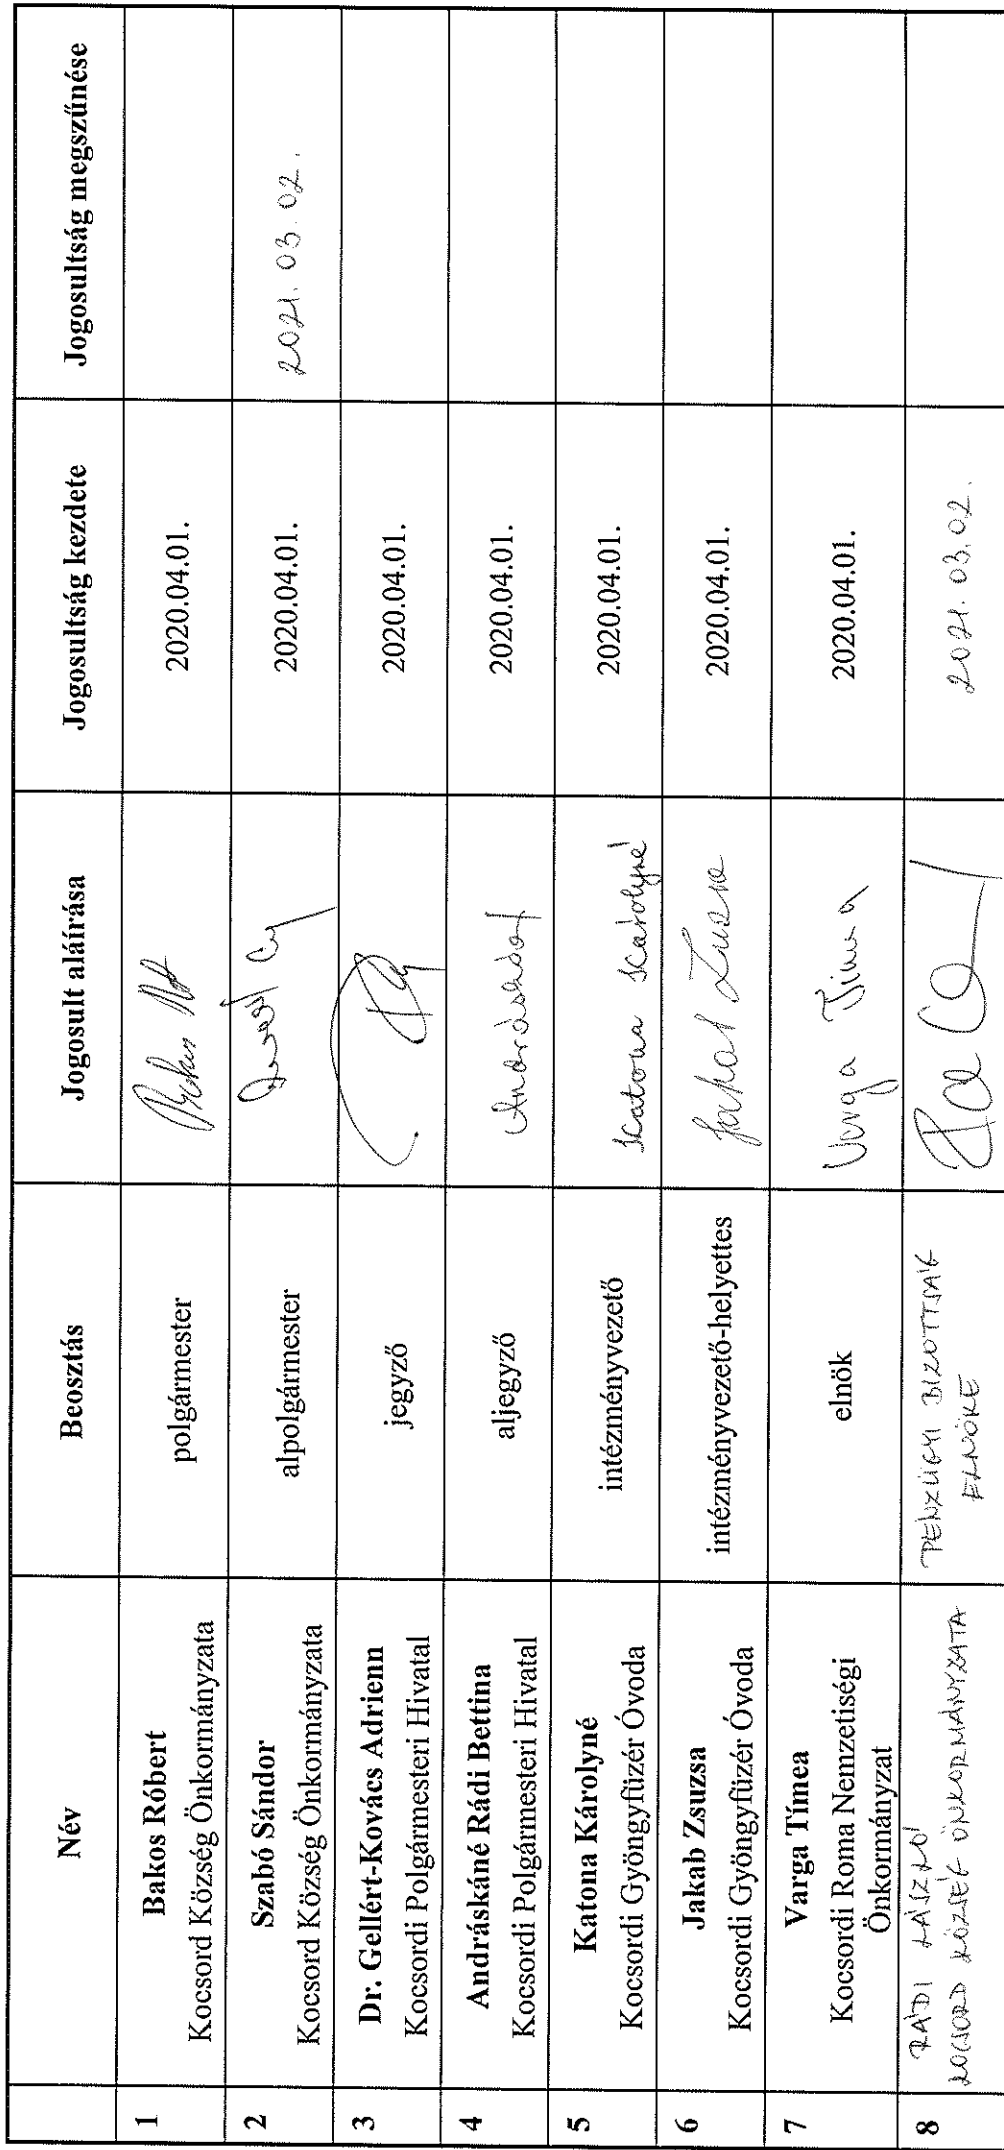 Név Beosztás Jogosult aláírása Jogosultság kezdete Jogosultság megszűnése
1 Bakos Róbert
Kocsord Község Önkormányzata
polgármester 2020.04.01.
2 Szabó Sándor
Kocsord Község Önkormányzata
alpolgármester 2020.04.01. 2021. 03. 02.
3 Dr. Gellért-Kovács Adrienn
Kocsordi Polgármesteri Hivatal
jegyző 2020.04.01.
4 Andráskáné Rádi Bettina
Kocsordi Polgármesteri Hivatal
aljegyző 2020.04.01.
5 Katona Károlyné
Kocsordi Gyöngyfüzér Óvoda
intézményvezető Katona Károlyné 2020.04.01.
6 Jakab Zsuzsa
Kocsordi Gyöngyfüzér Óvoda
intézményvezető-helyettes Jakab Zsuzsa 2020.04.01.
7 Varga Tímea
Kocsordi Roma Nemzetiségi
Önkormányzat
elnök Varga Tímea 2020.04.01.
8 RÁDI LÁSZLÓ
KOCSORD KÖZSÉG ÖNKORMÁNYZATA
PÉNZÜGYI BIZOTTSÁG
ELNÖKE
2021. 03. 02.